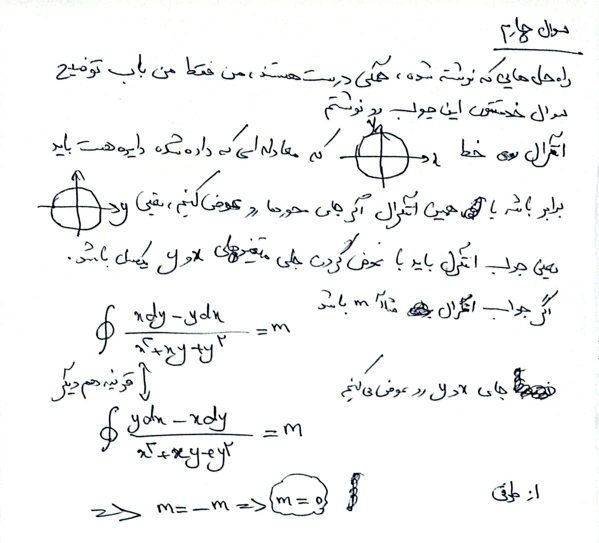 سوال چهارم
راه حل هایی که نوشته شده، همگی درست هستند، من فقط من باب توضیح
سوال خدمتتون این جواب رو نوشتم
انتگرال روی خط y x که معادله اسی که داده شده دایره هست باید
برابر باشه با همین انتگرال اگر جای محورها رو عوض کنیم، یعنی y
یعنی جواب انتگرال باید با عوض کردن جای متغیرهای x و y یکسان باشد.
اگر جواب انتگرال مثلا m باشد
∮ (xdy - ydx)/(x² + xy + y²) = m
جای x و y رو عوض می کنیم
قرینه هم دیگر
∮ (ydx - xdy)/(x² + xy + y²) = m
از طرفی
=> m = -m => m = 0